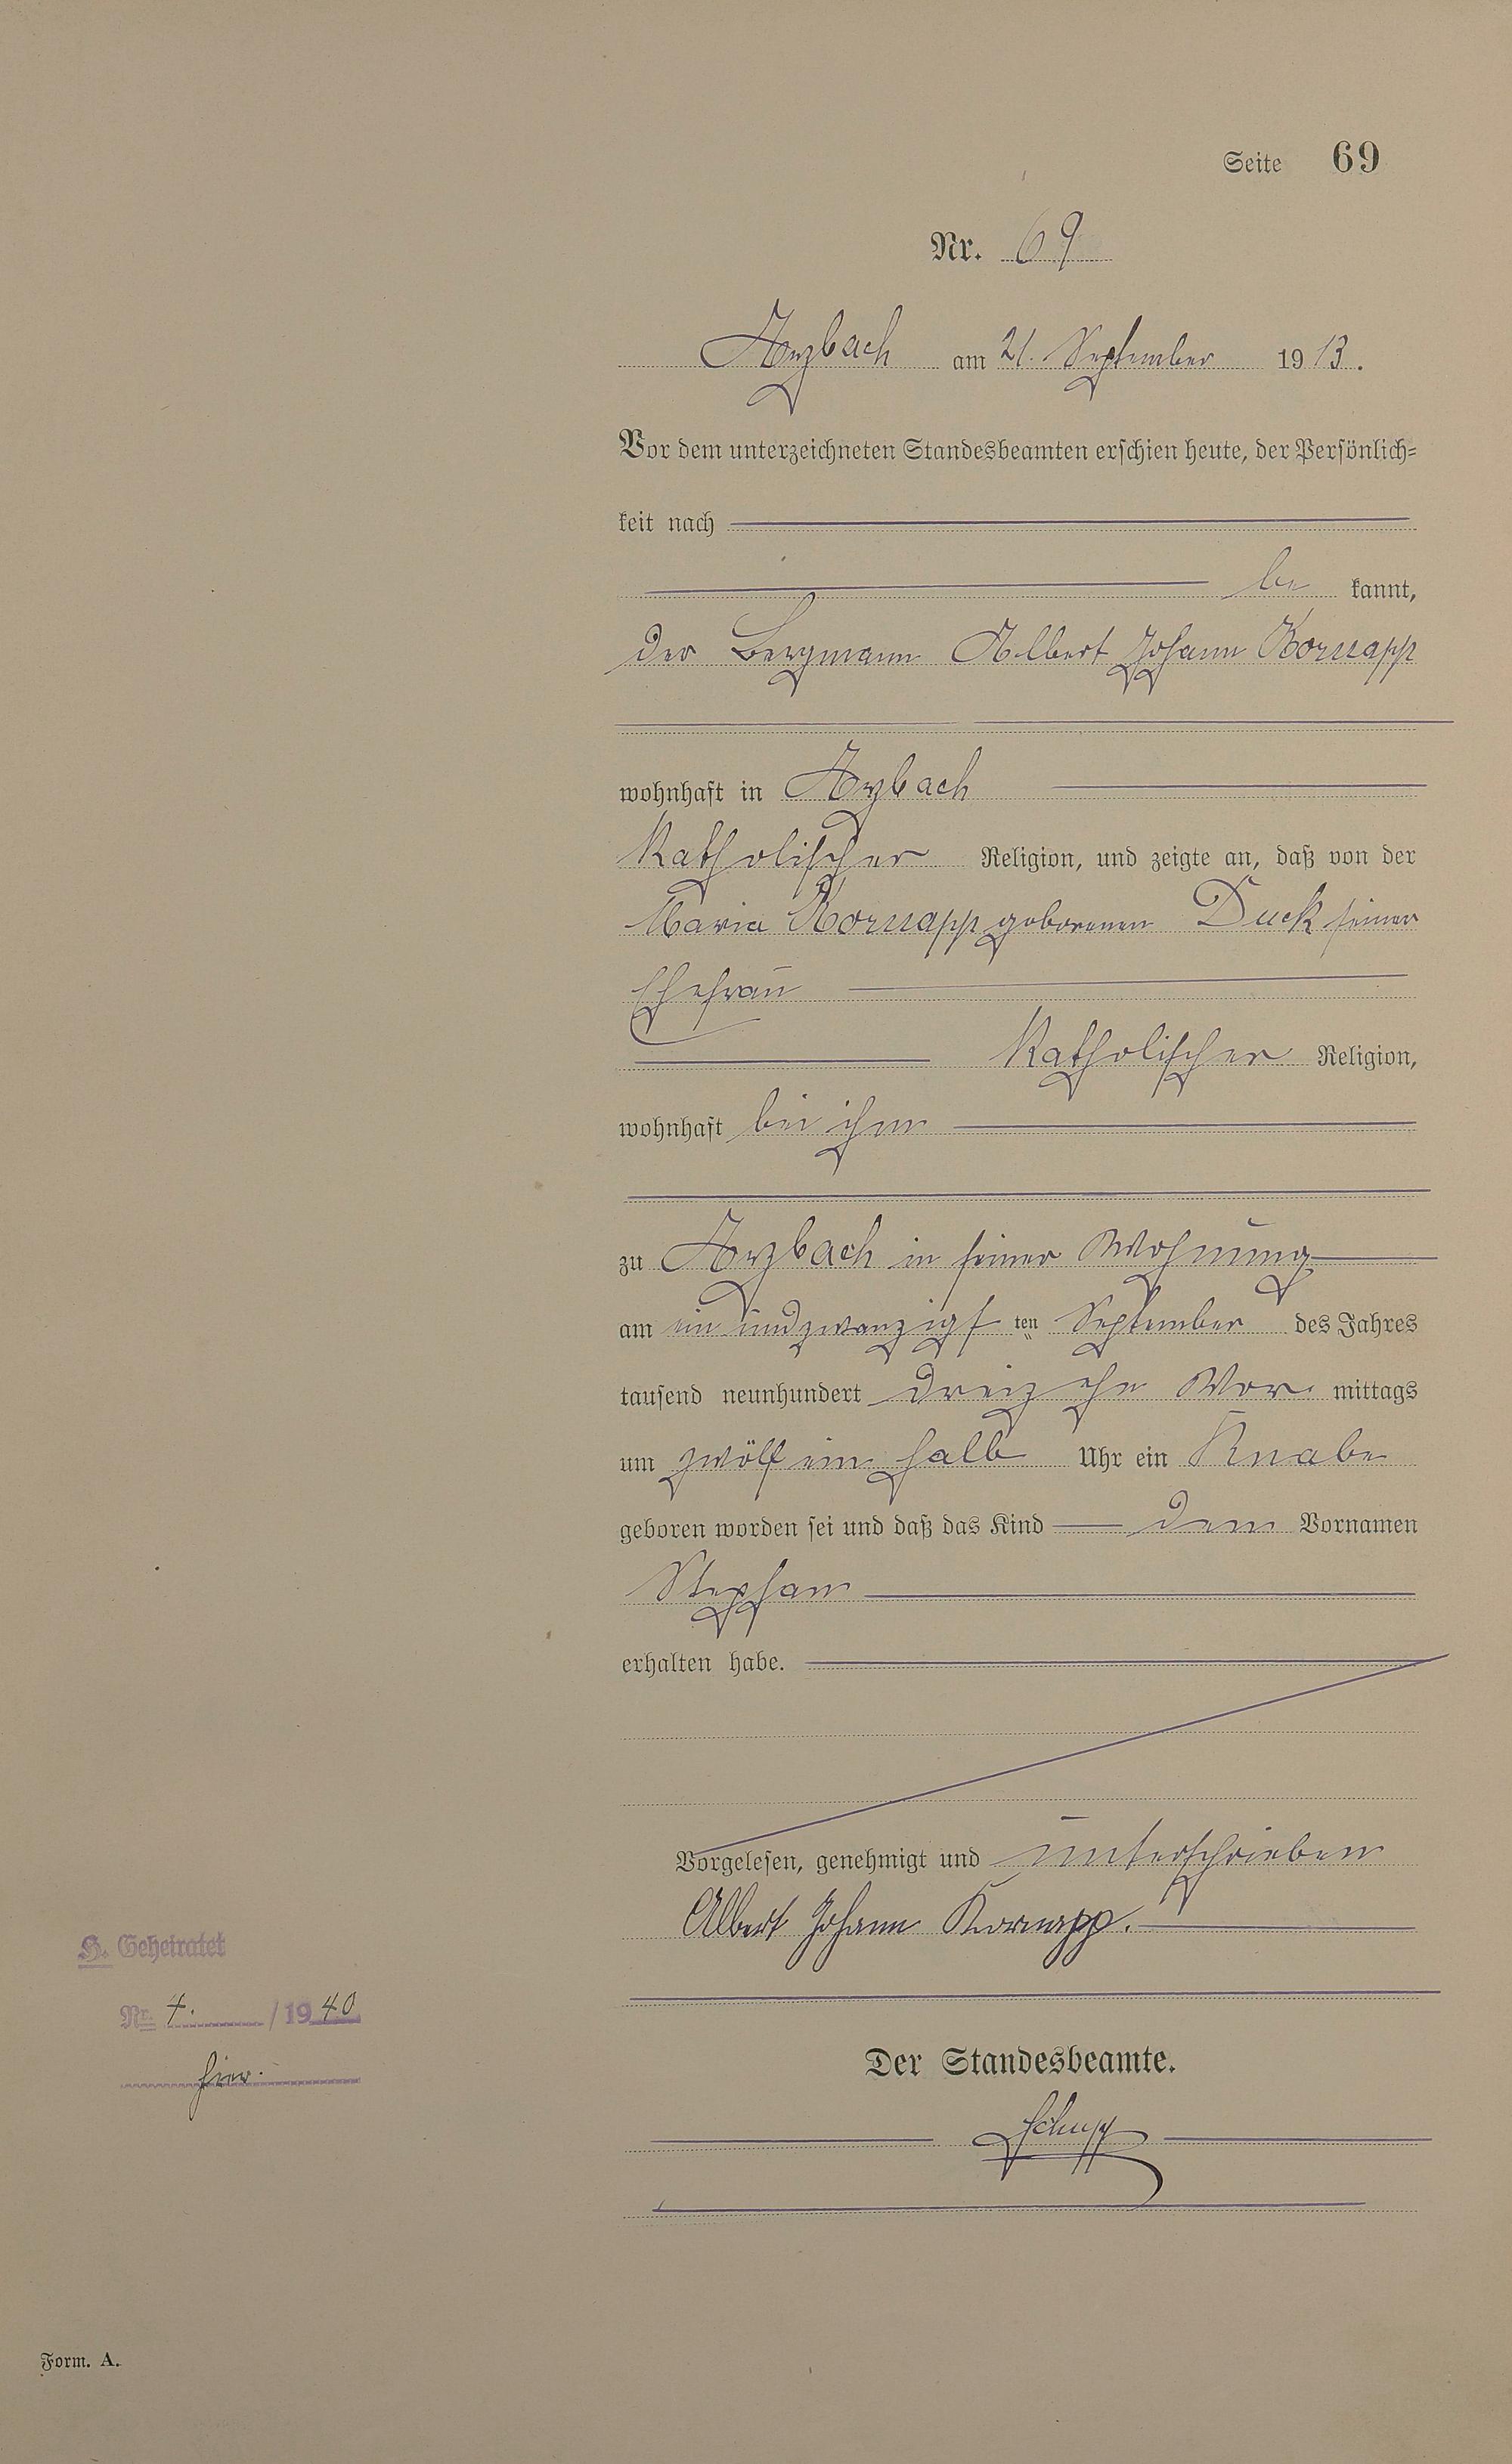 Seite 69
Nr. 69
Arzbach am 21. September 1913.
Vor dem unterzeichneten Standesbeamten erschien heute, der Persönlich-
keit nach
be kannt,
der Bergmann Albert Johann Kornapp
wohnhaft in Arzbach
Katholischer Religion, und zeigte an, daß von der
Maria Kornapp geborenen Duck seiner
Ehefrau
Katholischer Religion,
wohnhaft bei ihm
zu Arzbach in seiner Wohnung
am ein und zwanzigsten September des Jahres
tausend neunhundert dreizehn Vor mittags
um zwölf ein halb Uhr ein Knabe
geboren worden sei und daß das Kind den Vornamen
Stephan
erhalten habe.
Vorgelesen, genehmigt und unterschrieben
Albert Johann Kornapp.
H. Geheiratet
Nr. 4. / 1940
hier.
Der Standesbeamte.
Schupp
Form. A.